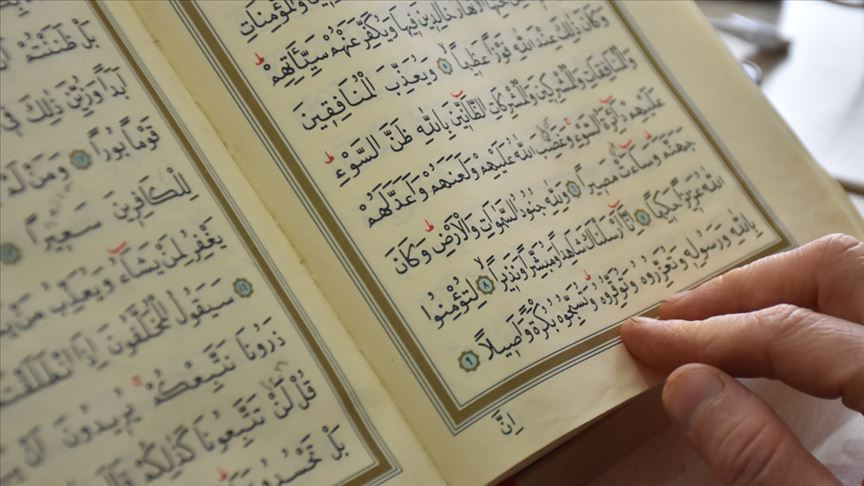 وَالْمُؤْمِنَاتِ
الْاَنْهَارُ خَالِدِينَ فِيهَا وَيُكَفِّرَ عَنْهُمْ سَيِّاٰتِهِمْ
وَكَانَ ذٰلِكَ عِنْدَ اللّٰهِ فَوْزًا عَظِيمًا ٥ وَيُعَذِّبَ الْمُنَافِقِينَ
وَالْمُنَافِقَاتِ وَالْمُشْرِكِينَ وَالْمُشْرِكَاتِ الظَّانِّينَ بِاللّٰهِ ظَنَّ السَّوْءِ
عَلَيْهِمْ دَائِرَةُ السَّوْءِ وَغَضِبَ اللّٰهُ عَلَيْهِمْ وَلَعَنَهُمْ وَاَعَدَّ لَهُمْ
جَهَنَّمَ وَسَاءَتْ مَصِيرًا ٦ وَلِلّٰهِ جُنُودُ السَّمٰوَاتِ وَالْاَرْضِ وَكَانَ
اللّٰهُ عَزِيزًا حَكِيمًا ٧ اِنَّا اَرْسَلْنَاكَ شَاهِدًا وَمُبَشِّرًا وَنَذِيرًا ٨ لِتُؤْمِنُوا
بِاللّٰهِ وَرَسُولِهِ وَتُعَزِّرُوهُ وَتُوَقِّرُوهُ وَتُسَبِّحُوهُ بُكْرَةً وَاَصِيلًا ٩
اِنَّ
بَلْ ظَنَنْتُمْ
اَبَدًا وَزُيِّنَ ذٰلِكَ فِي
قَوْمًا بُورًا ١٢ وَمَنْ لَمْ
لِلْكَافِرِينَ سَعِيرًا ١٣
يَغْفِرُ لِمَنْ يَشَاءُ وَيُعَذِّبُ مَنْ
١٤ سَيَقُولُ الْمُخَلَّفُونَ اِذَا انْطَلَقْتُمْ
ذَرُونَا نَتَّبِعْكُمْ يُرِيدُونَ اَنْ
قُلْ لَنْ تَتَّبِعُونَا كَذٰلِكُمْ قَالَ
بَلْ تَحْسُدُونَنَا